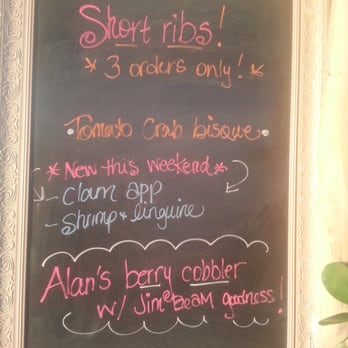 Short ribs!
* 3 orders only! *
• Tomato Crab bisque •
* New this weekend *
- Clam app
- Shrimp & linguine
Alan's berry cobbler
w/ Jim Beam goodness!